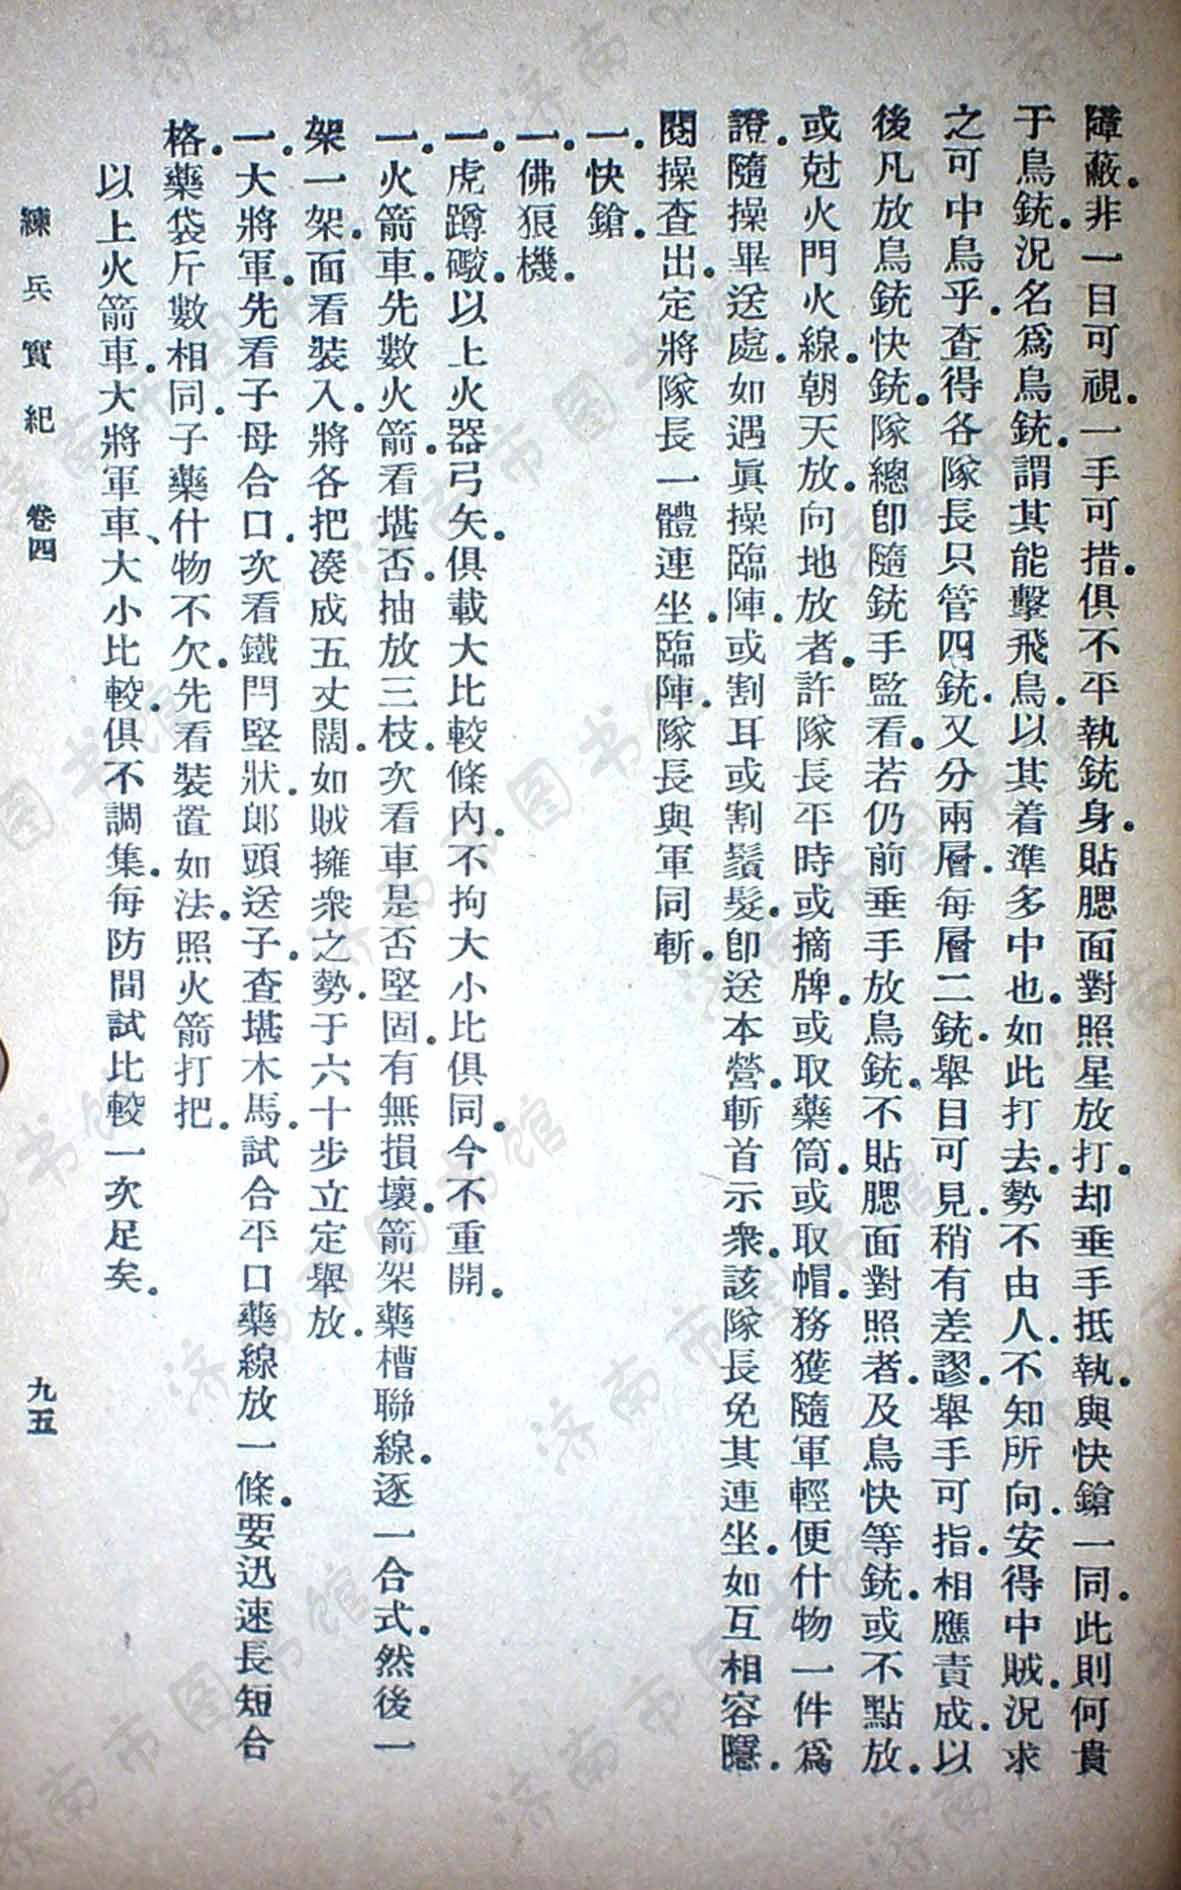 障蔽。非一目可視。一手可措。俱不平執銃身。貼腮面對照星放打。却垂手抵執。與快鎗一同。此則何貴
于鳥銃。況名爲鳥銃。謂其能擊飛鳥。以其着準多中也。如此打去。勢不由人。不知所向。安得中賊。況求
之可中鳥乎。查得各隊長只管四銃。又分兩層。每層二銃。舉目可見。稍有差謬。舉手可指。相應責成。以
後凡放鳥銃快銃。隊總卽隨銃手監看。若仍前垂手放鳥銃。不貼腮面對照者。及鳥快等銃。或不點放。
或尅火門火線。朝天放。向地放者。許隊長平時或摘牌。或取藥筒。或取帽。務獲隨軍輕便什物一件爲
證。隨操畢送處。如遇眞操臨陣。或割耳或割鬚髮。卽送本營。斬首示衆。該隊長免其連坐。如互相容隱。
閱操查出。定將隊長一體連坐。臨陣。隊長與軍同斬。
一。快鎗。
一。佛狼機。
一。虎蹲礮。以上火器弓矢。俱載大比較條內。不拘大小比俱同。今不重開。
一。火箭車。先數火箭。看堪否。抽放三枝。次看車是否堅固。有無損壞。箭架藥槽聯線。逐一合式。然後一
架一架。面看裝入。將各把湊成五丈闊。如賊擁衆之勢。于六十步立定舉放。
一。大將軍。先看子母合口。次看鐵閂堅狀。郎頭送子。查堪木馬。試合平口藥線放一條。要迅速長短合
格。藥袋斤數相同。子藥什物不欠。先看裝置如法。照火箭打把。
以上火箭車。大將軍車、大小比較。俱不調集。每防間試比較一次足矣。
練兵實紀 卷四 九五
济南市图书馆